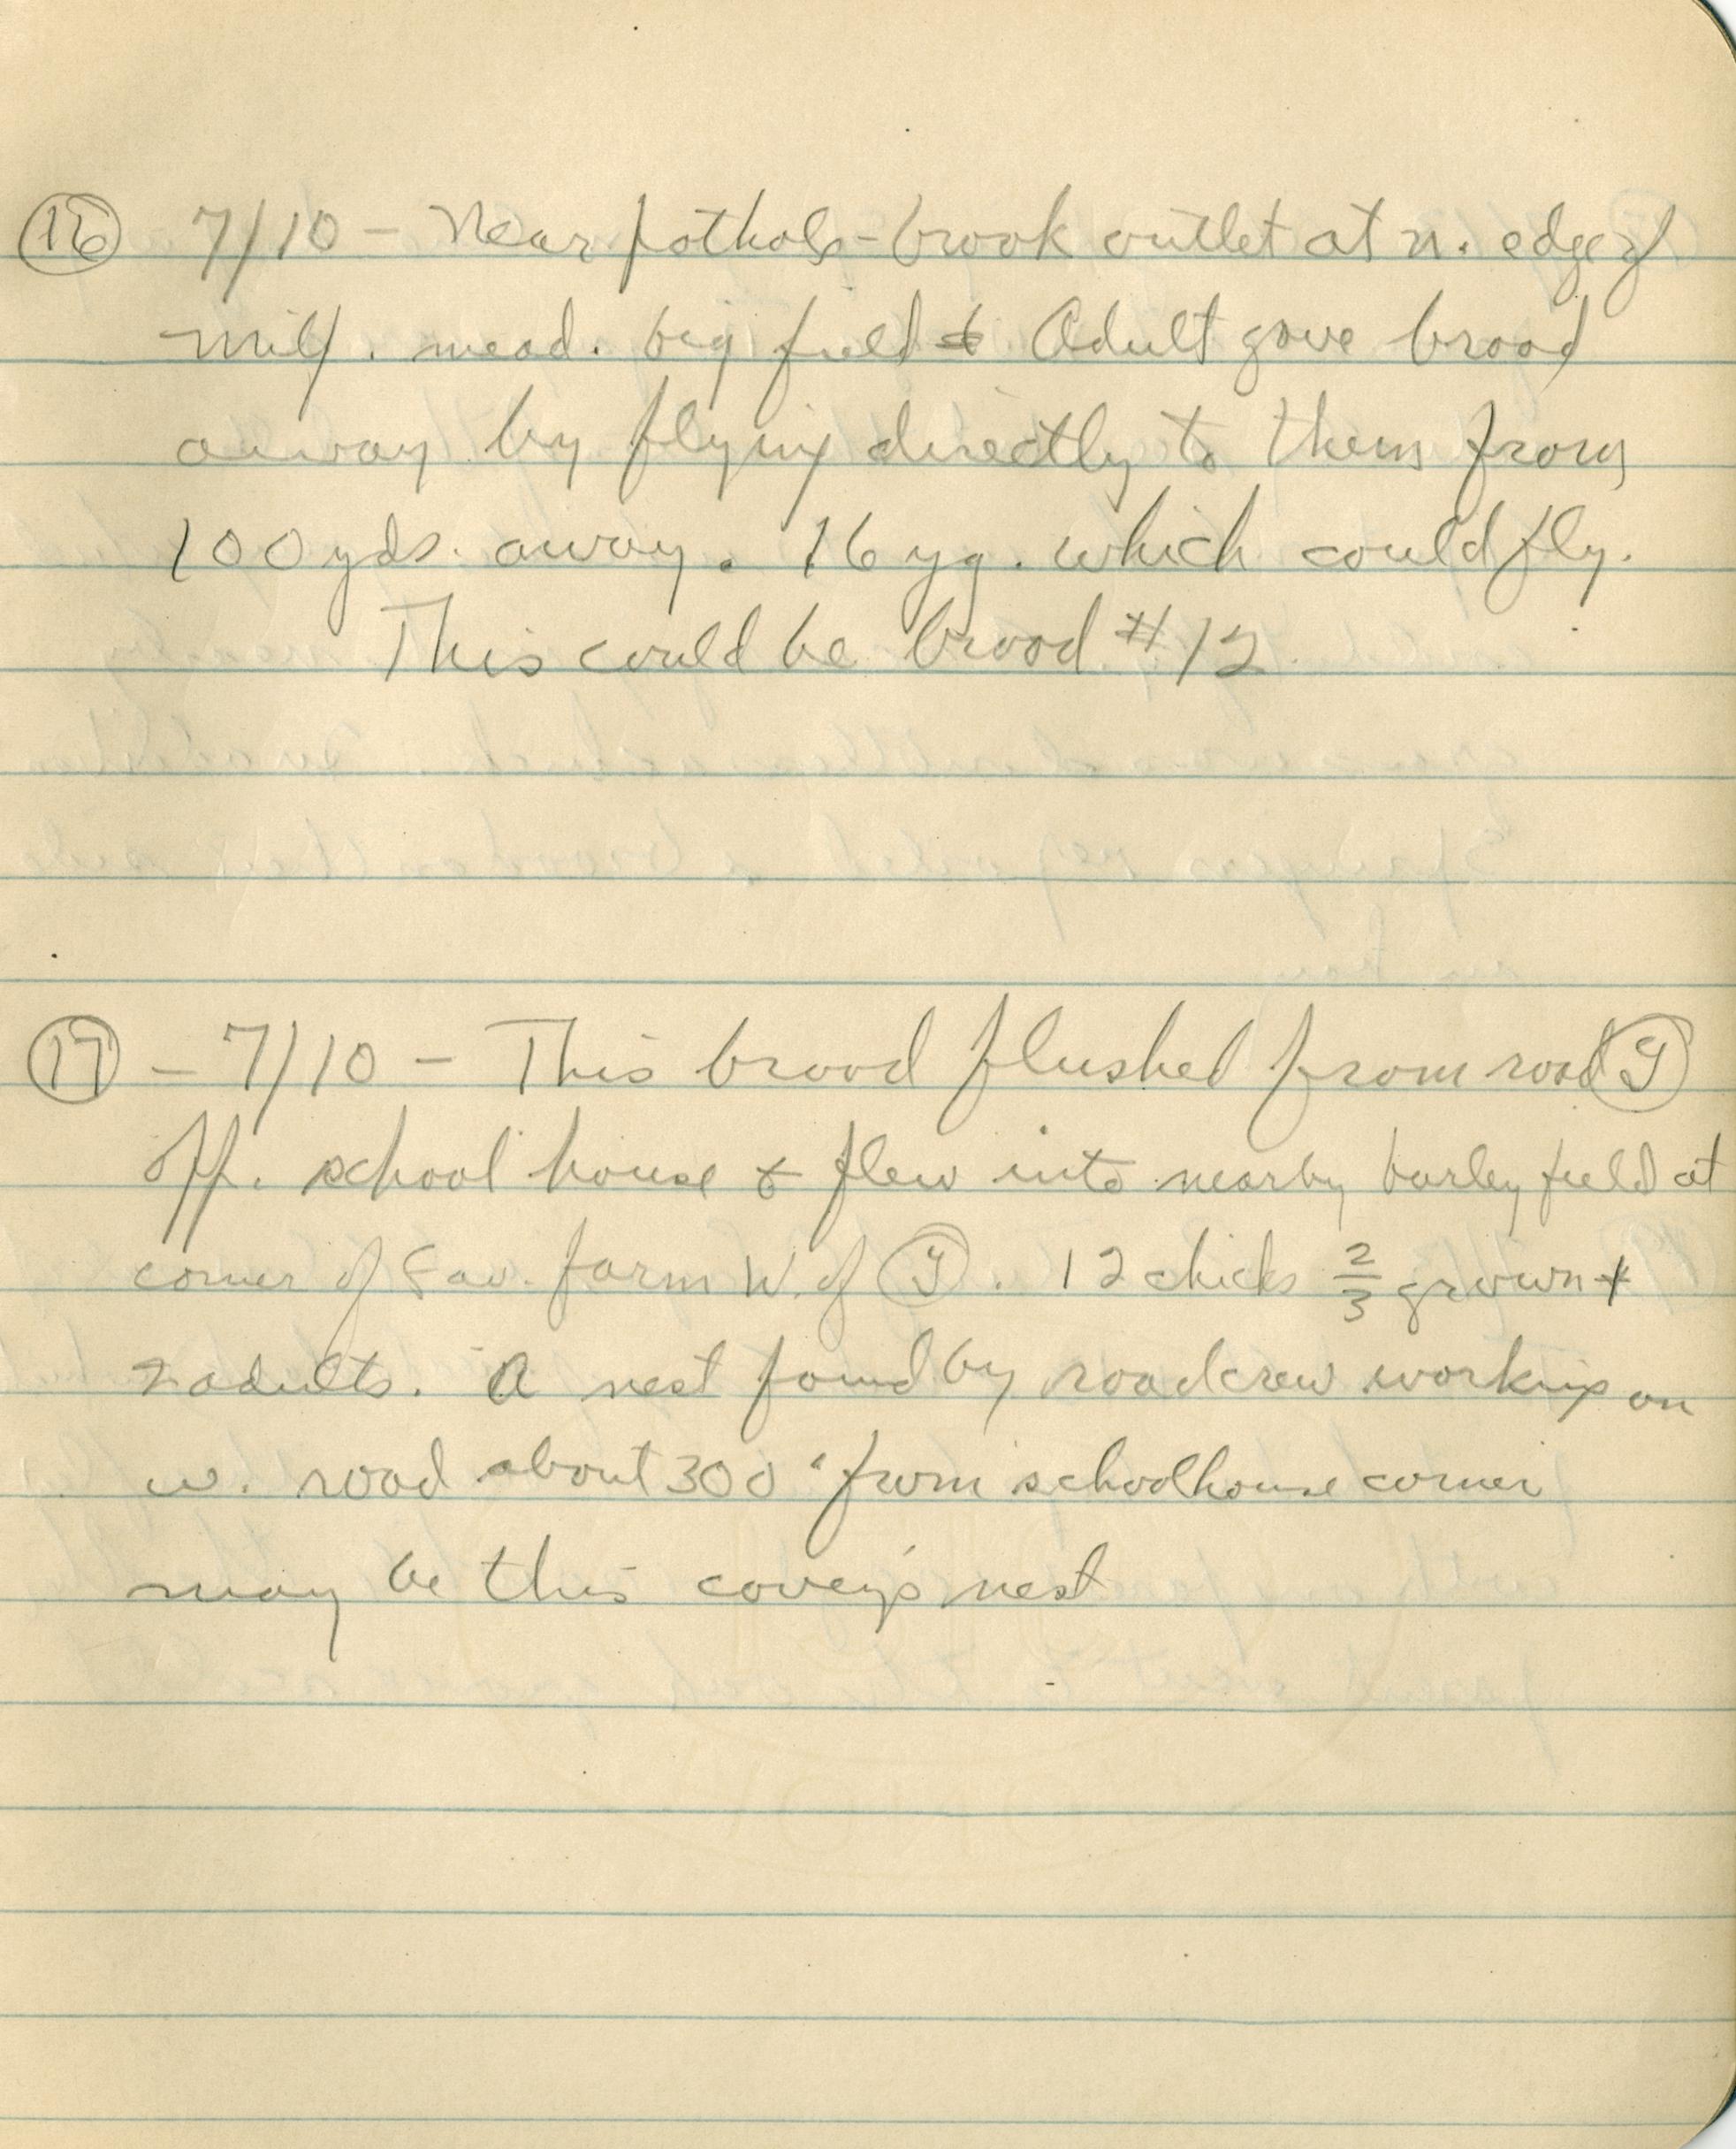 16 7/10 - Near pothole-brook outlet at n. edge of
milf. mead. big field & Adult gave brood
away by flying directly to them from
100 yds. away. 16 yg. which could fly.
This could be brood #12.
17 - 7/10 - This brood flushed from road
opp. school house & flew into nearby barley field at
corner of Fav. farm W. of . 12 chicks 2/3 grown +
2 adults. A nest found by roadcrew working on
w. road about 300' from schoolhouse corner
may be this covey's nest